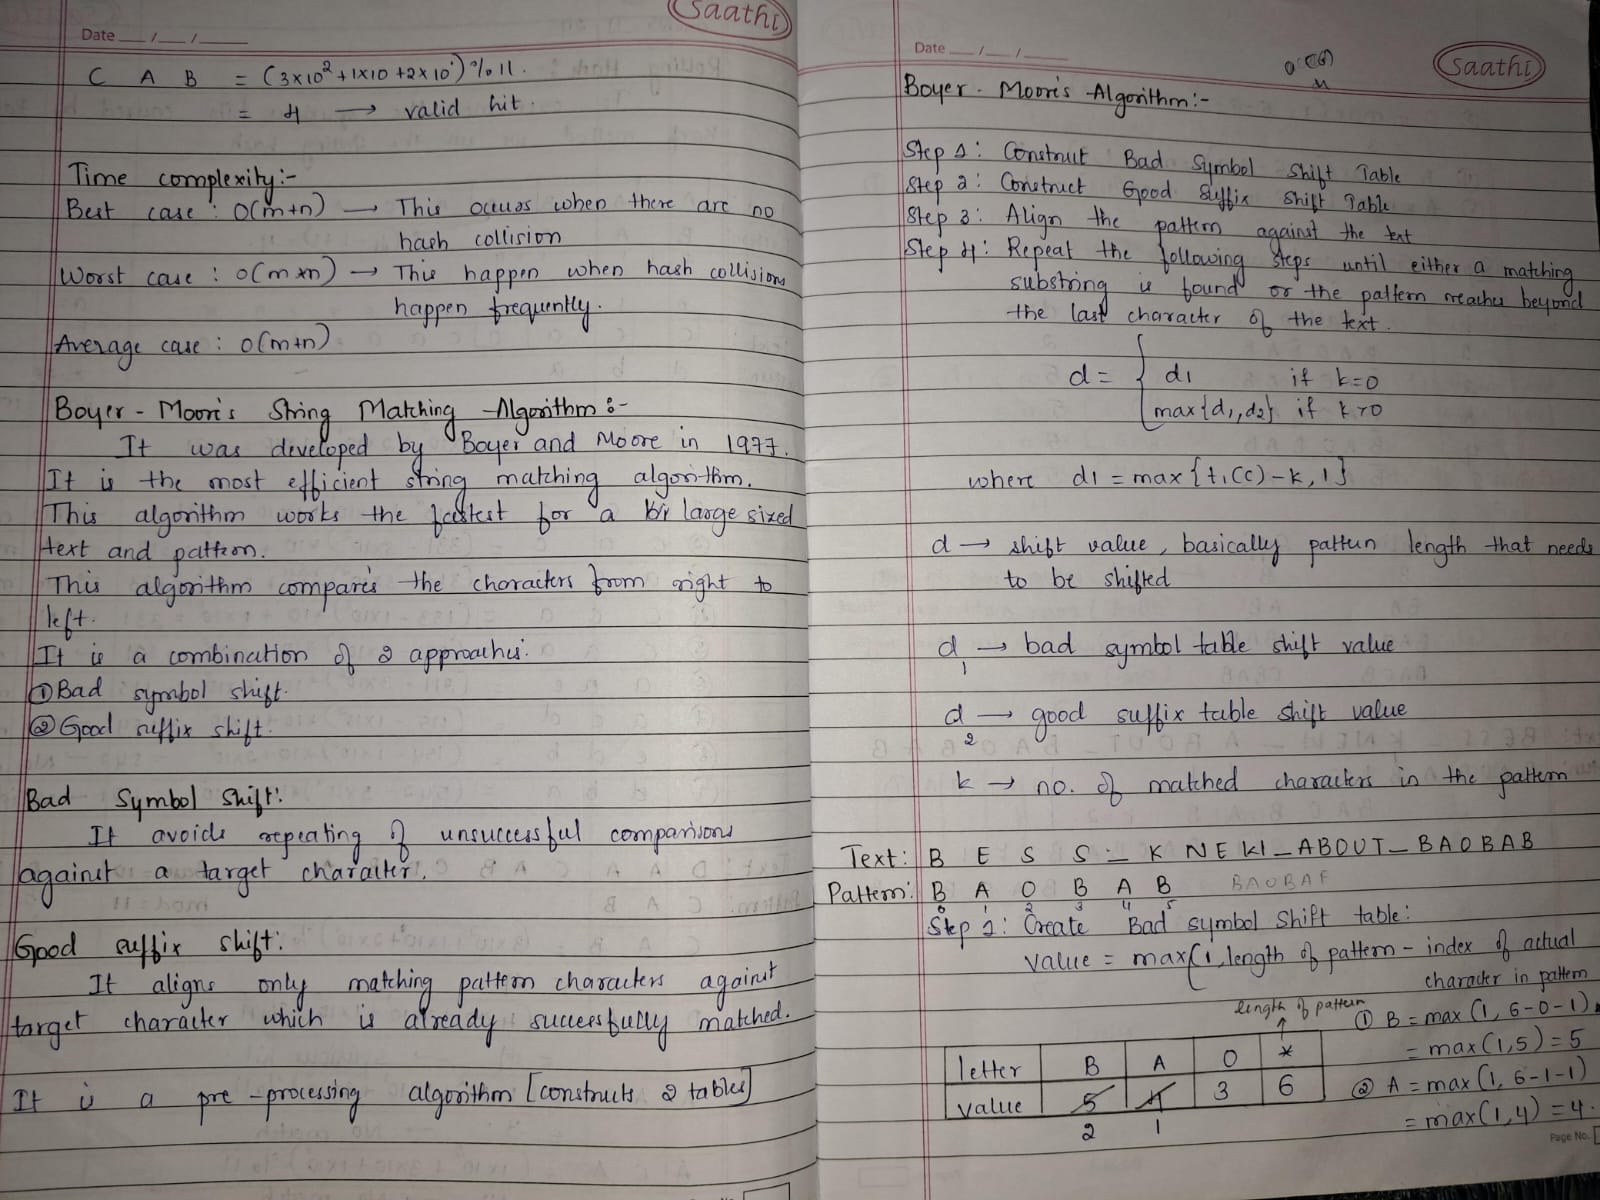 Saathi
Date __/__/____
C A B = (3×10² + 1×10 + 2×10°) % 11.
= 4 → valid hit.
Time complexity:-
Best case : O(m+n) → This occurs when there are no
hash collision
Worst case : O(m×n) → This happen when hash collisions
happen frequently.
Average case : O(m+n)
Boyer - Moore's String Matching Algorithm :-
It was developed by Boyer and Moore in 1977.
It is the most efficient string matching algorithm.
This algorithm works the fastest for a large sized
text and pattern.
This algorithm compares the characters from right to
left.
It is a combination of 2 approaches.
① Bad symbol shift.
② Good suffix shift.
Bad Symbol Shift:
It avoids repeating of unsuccessful comparisons
against a target character.
Good suffix shift:
It aligns only matching pattern characters against
target character which is already successfully matched.
It is a pre-processing algorithm [constructs 2 tables]
Date __/__/____
Saathi
Boyer - Moore's Algorithm:-
Step 1: Construct Bad Symbol Shift Table
Step 2: Construct Good Suffix Shift Table
Step 3: Align the pattern against the text
Step 4: Repeat the following steps until either a matching
substring is found or the pattern reaches beyond
the last character of the text.
d = { d1 if k=0
max{d1,d2} if k>0
where d1 = max {t1(c)-k, 1}
d → shift value, basically pattern length that needs
to be shifted
d1 → bad symbol table shift value
d2 → good suffix table shift value
k → no. of matched characters in the pattern
Text: B E S S _ K N E KI_ABOUT_BAOBAB
Pattern: B A O B A B
0 1 2 3 4 5
Step 1: Create Bad symbol Shift table:
Value = max(1, length of pattern - index of actual
character in pattern
length of pattern
letter B A O *
value 5 4 3 6
2 1
① B = max (1, 6-0-1)
= max(1,5) = 5
② A = max(1, 6-1-1)
= max(1,4) = 4.
Page No.